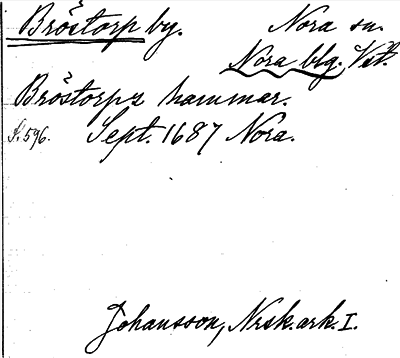 Bröstorp by. Nora sn.
Nora blg. Vst.
Bröstorps hammar.
S. 596. Sept. 1687 Nora.
Johansson, Nrsk. ark. I.